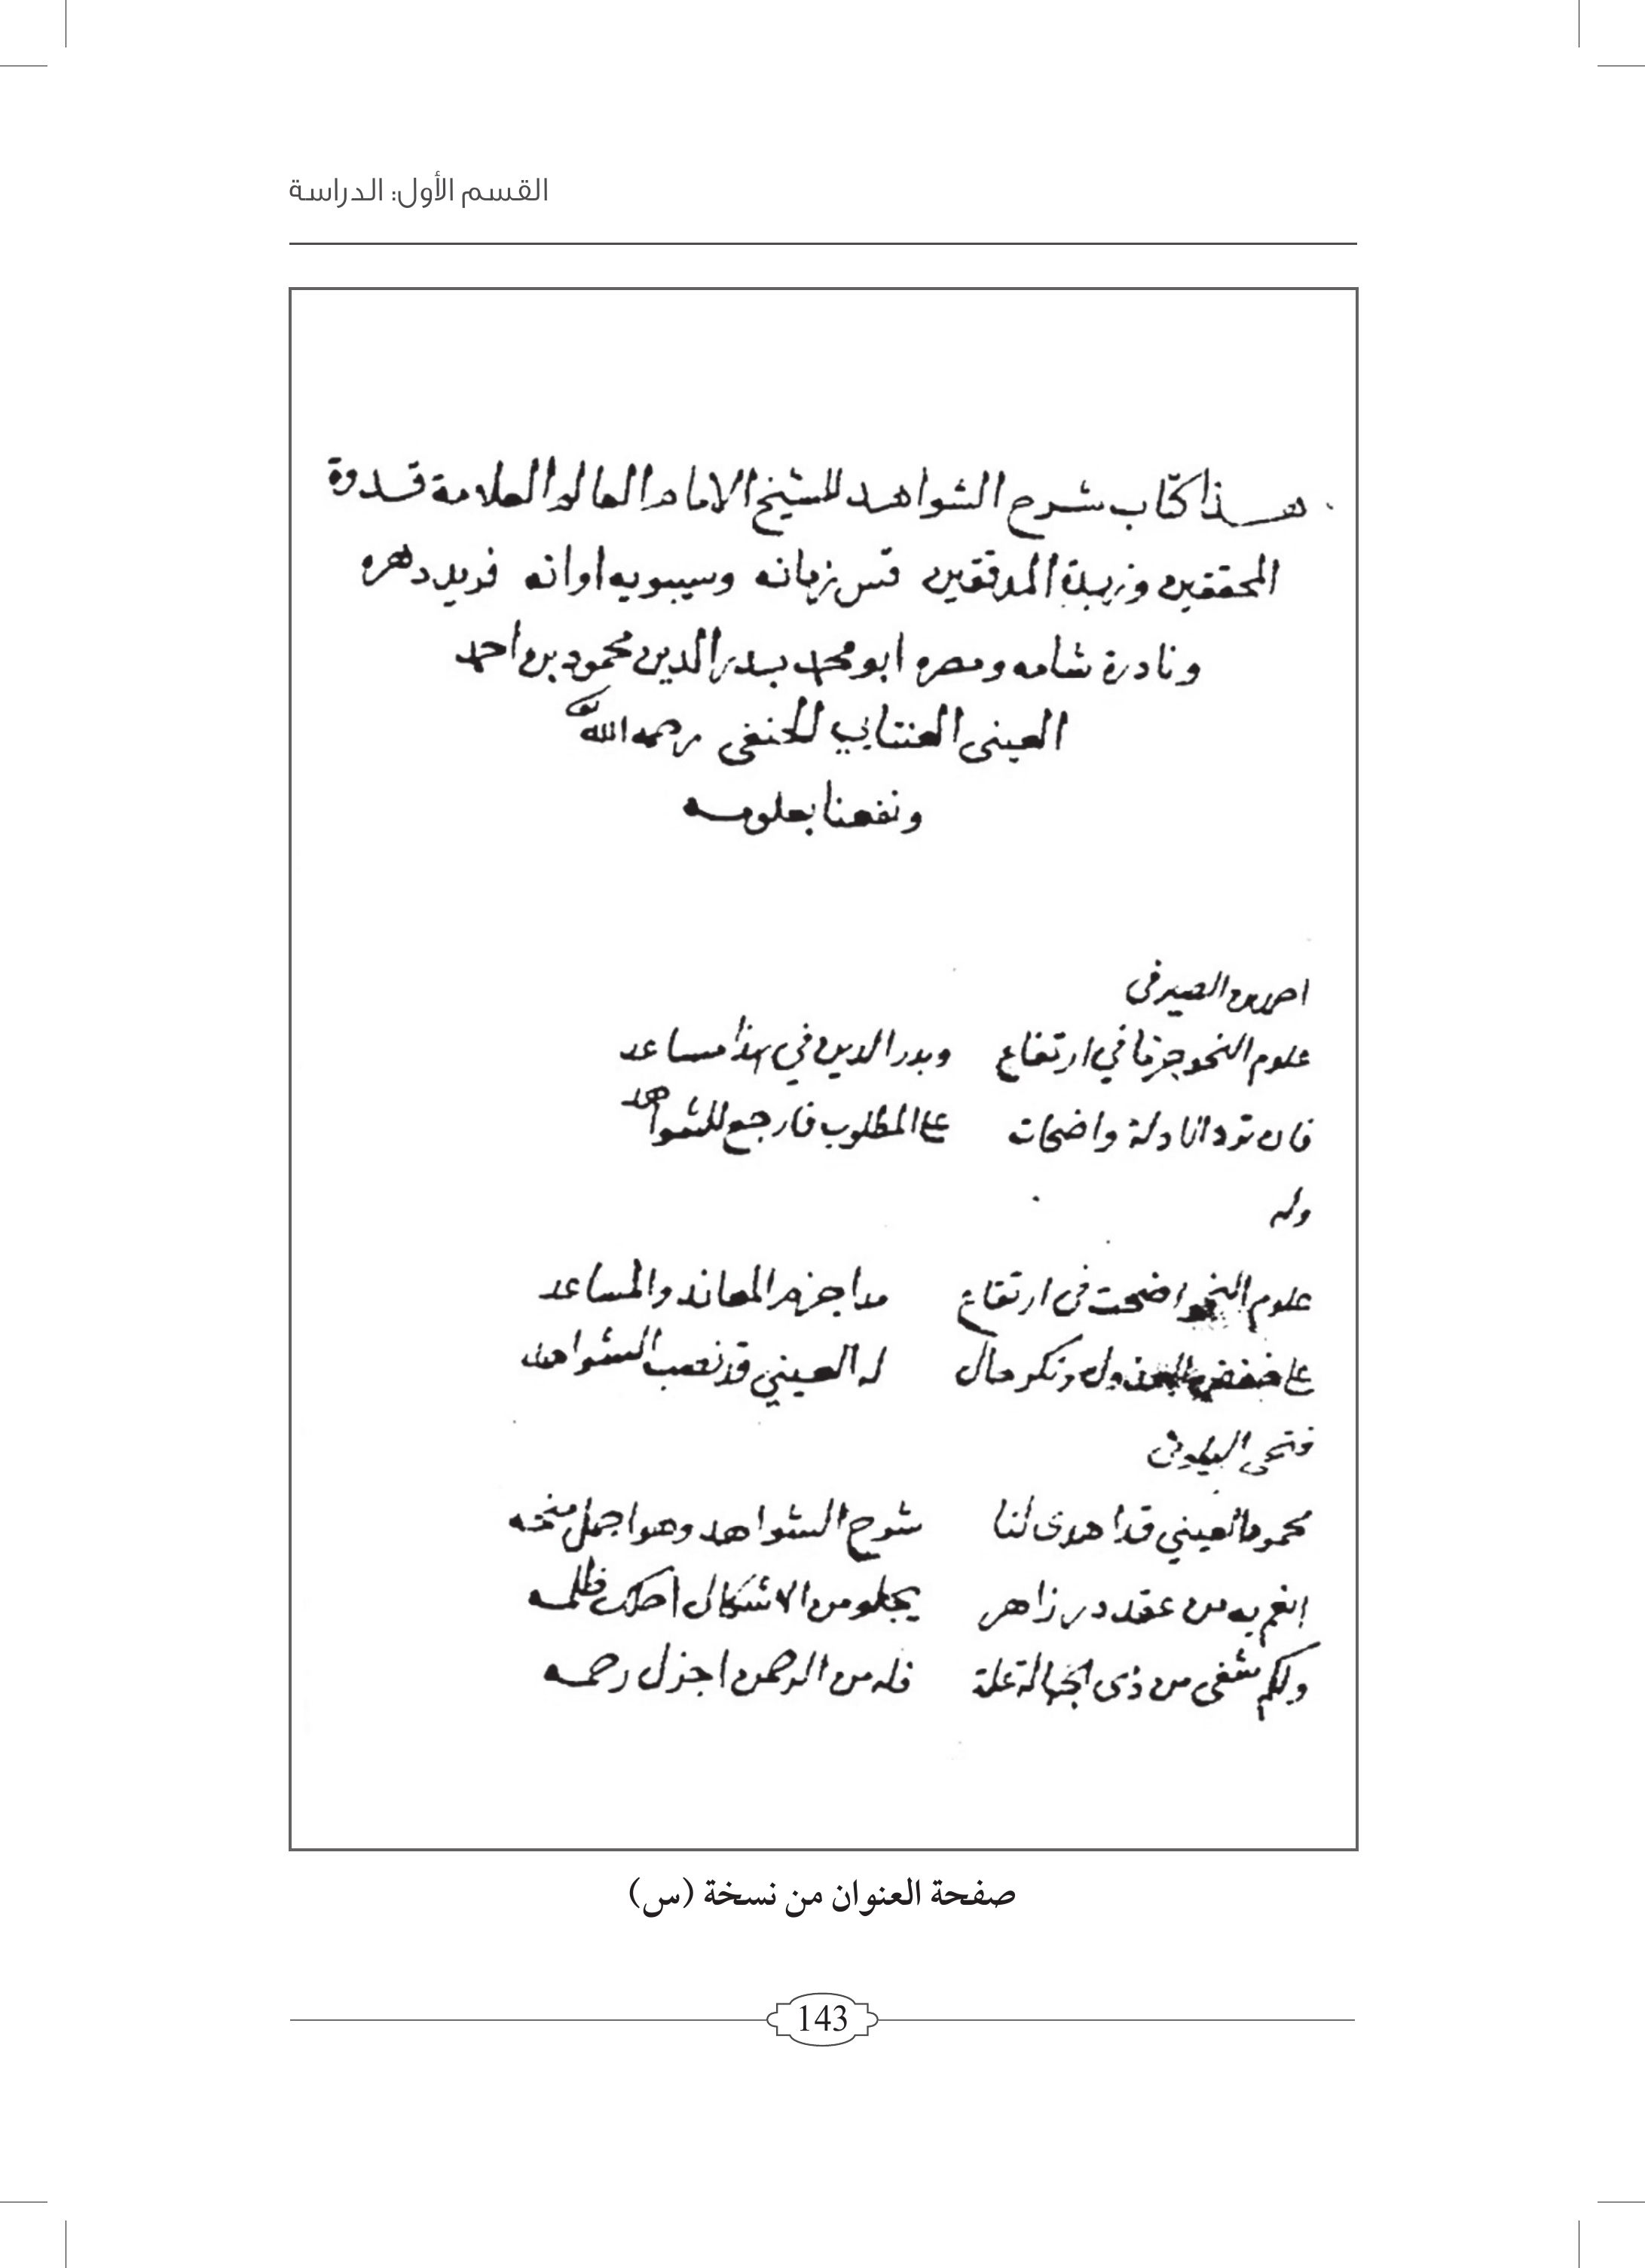 القسم الأول: الدراسة
هذا كتاب شرح الشواهد للشيخ الامام العالم العلامة قدوة
المحققين وزبدة المدققين قس زمانه وسيبويه اوانه فريد دهره
ونادرة شامه ومصره ابو محمد بدر الدين محمود بن أحمد
العيني العنتابي الحنفي رحمه الله
ونفعنا بعلومه
الصيرفي
علوم النحو جزما في ارتفاع وبدر الدين في هذا مساعد
فان ترد ادلة واضحات على المطلوب فارجع للشواهد
وله
علوم النحو اضحت في ارتفاع مدا جزم المعاند والمساعد
على خفض ونكر حال له العيني قد نصب الشواهد
محمود العيني قد اهدى لنا شرح الشواهد وهو اجمل منحه
انعم به من عقد در زاهر يجلو من الاشكال احلك ظلمه
ولكم شفى من ذي الجهالة علة فله من الرحمن اجزل رحمه
صفحة العنوان من نسخة (س)
143